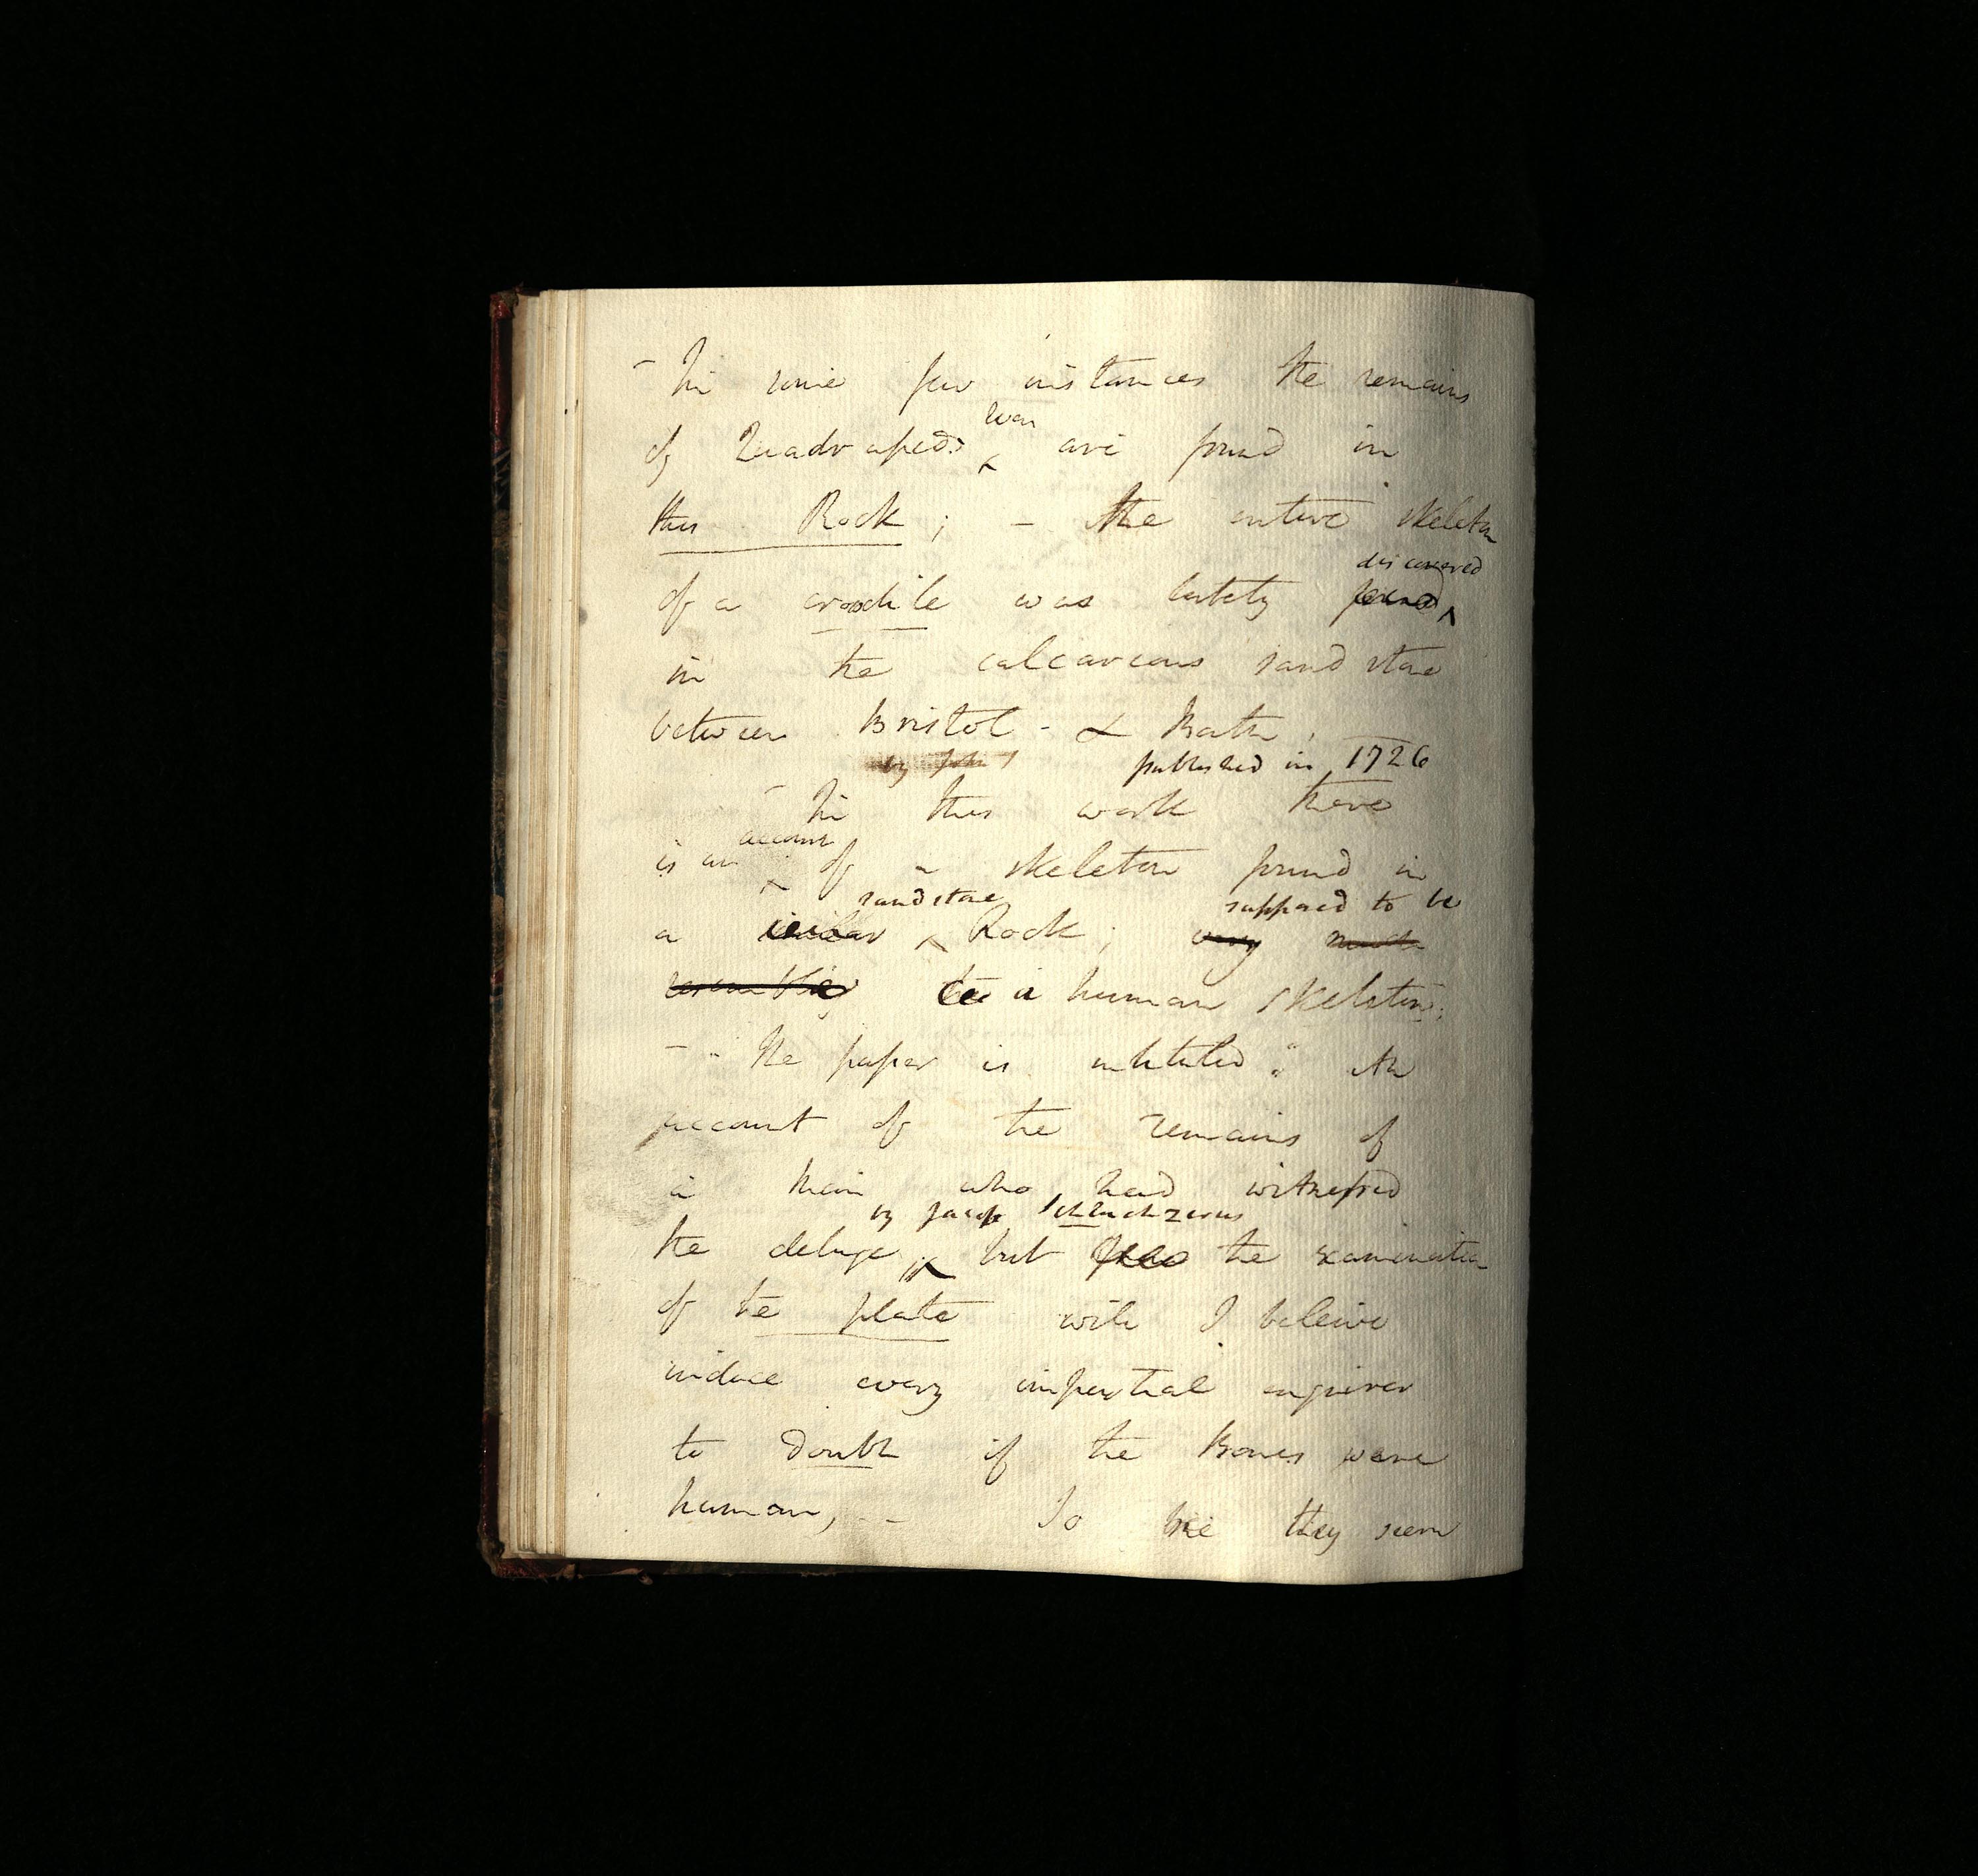 - In some few instances the remains
of Quadrupeds even are found in
this Rock; - the entire skeleton
discovered
of a crocodile was lately found
in the calcareous sand stone
between Bristol - & Bath.
by John published in 1726
- In this work there
is an account of a skeleton found in
sandstone supposed to be
a similar Rock; very much
resembling to a human skeleton;
- "The paper is intituled "An
account of the remains of
a man who had witnessed
by Jacob Scheuchzerus
the deluge, but the examination
of the plate will I beleive
induce every impartial enquirer
to doubt if the Bones were
human, - To me they seem